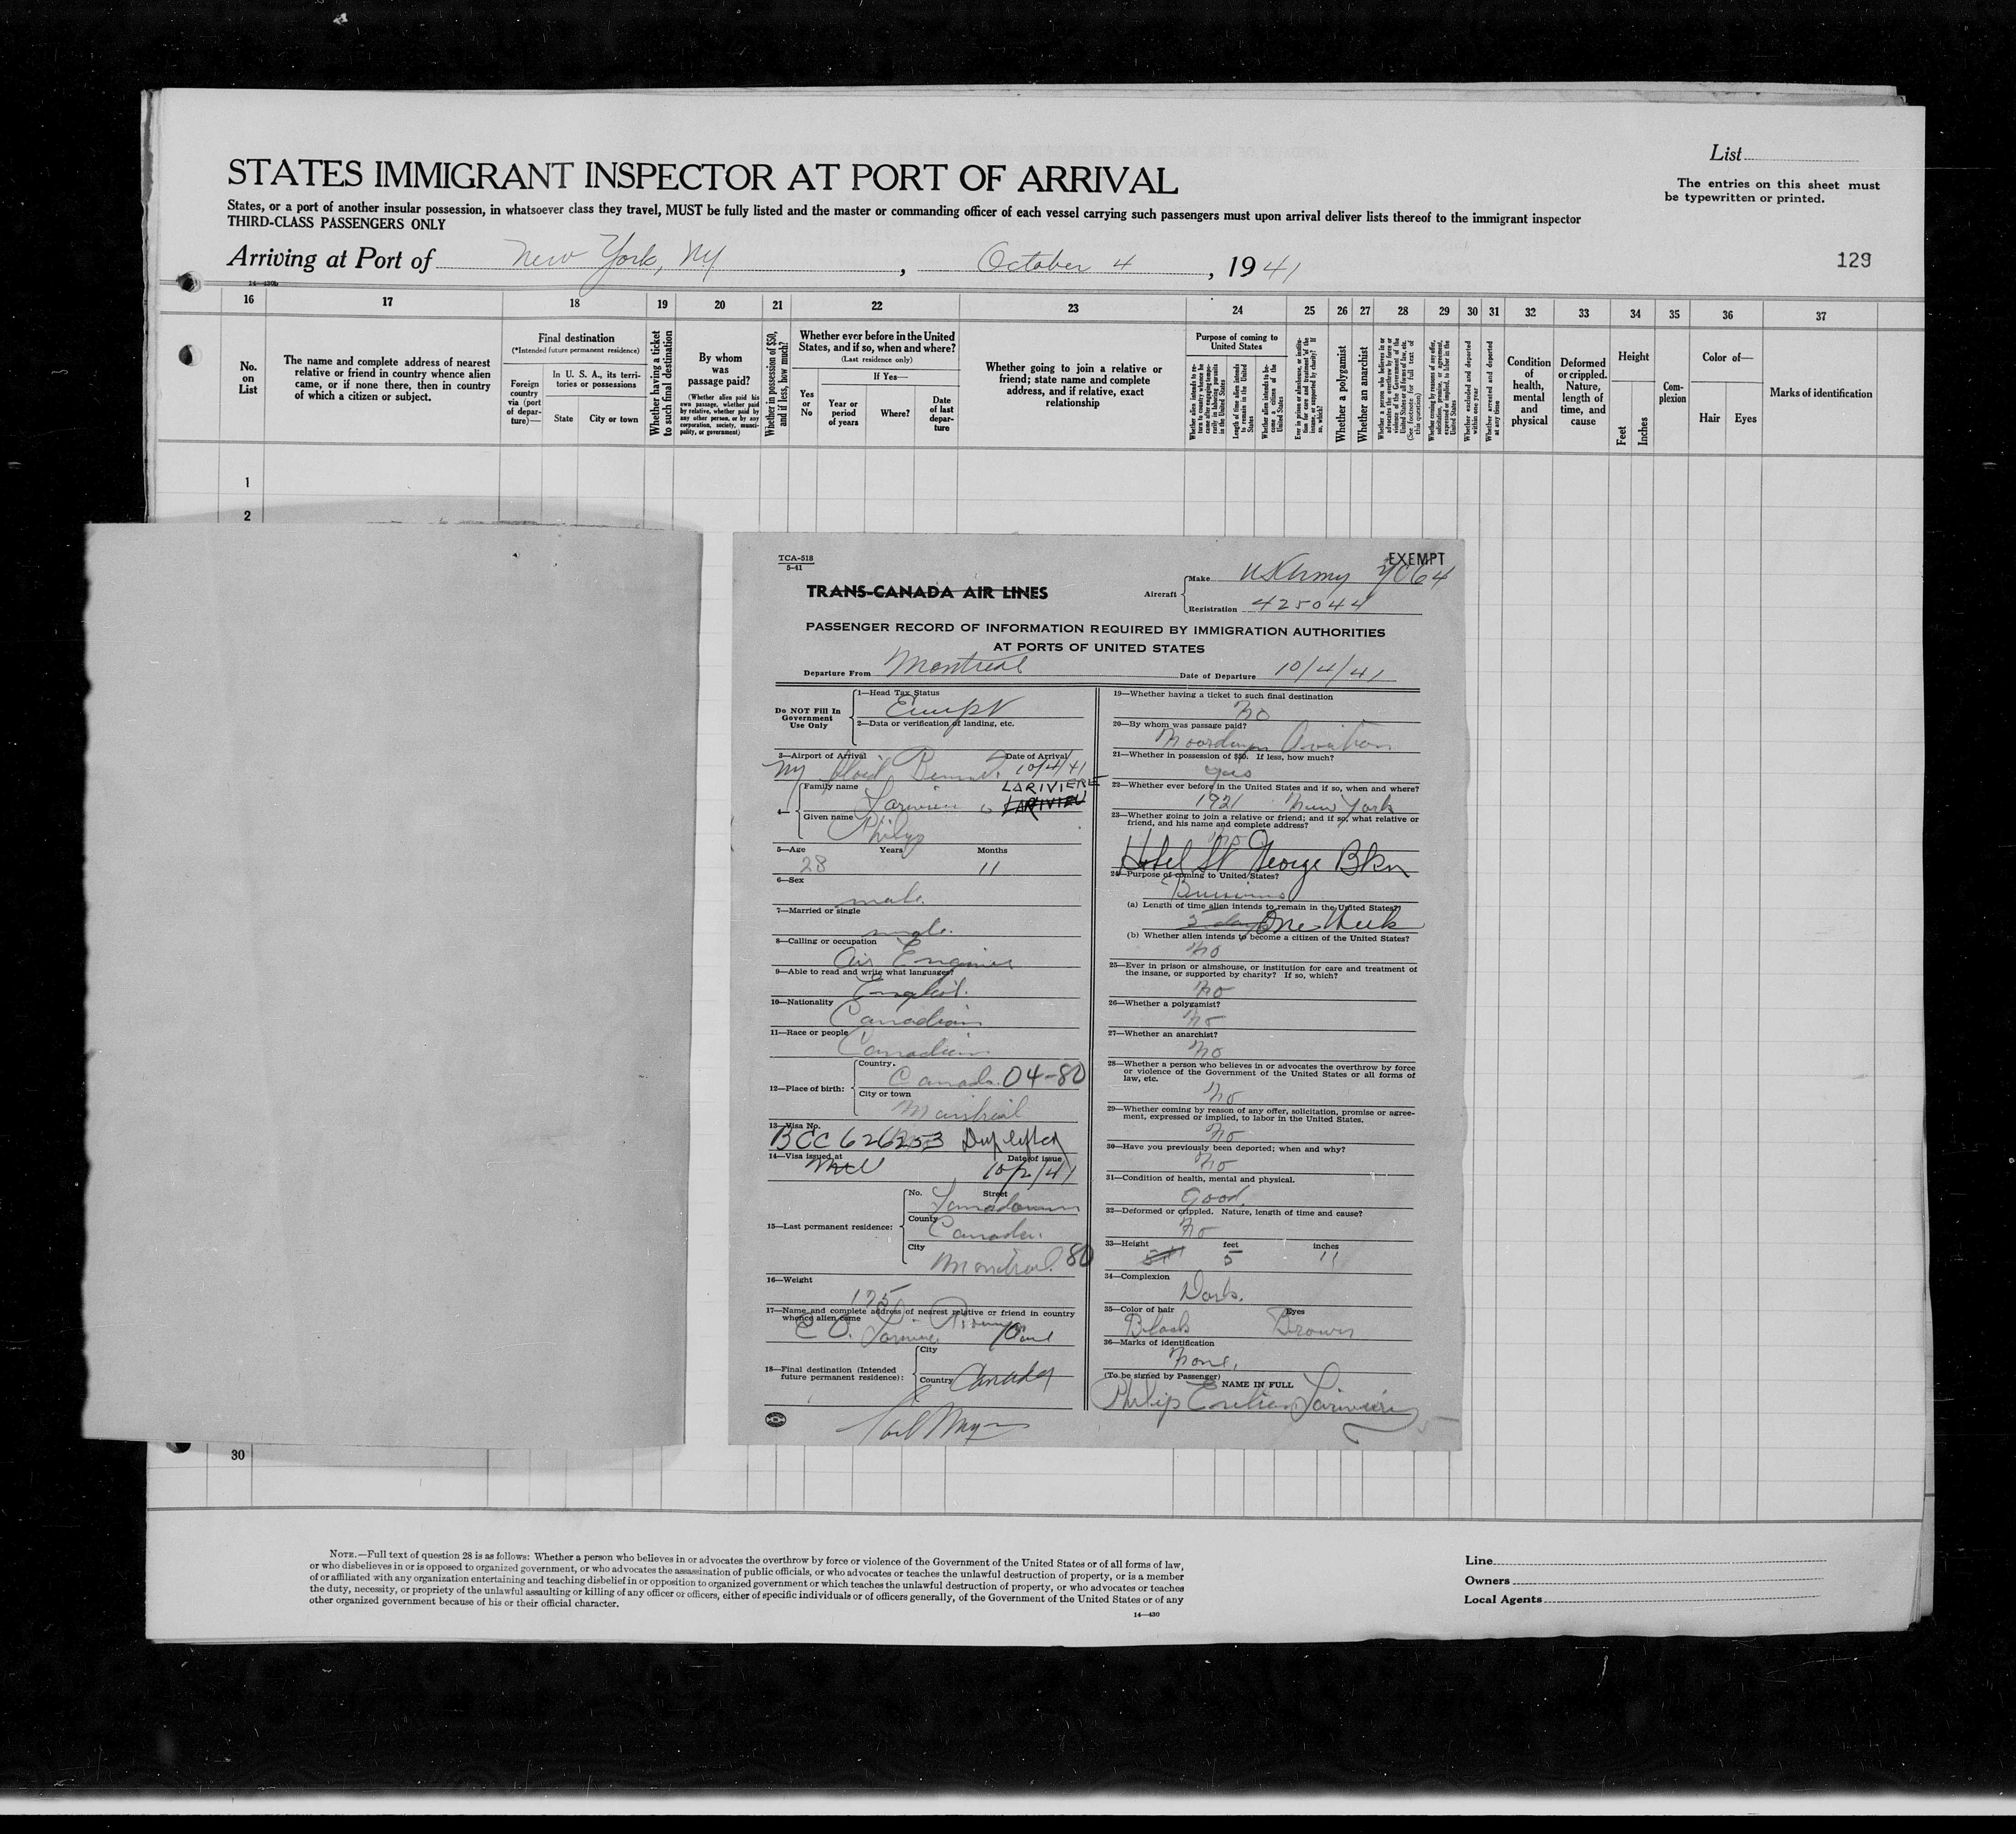 List
STATES IMMIGRANT INSPECTOR AT PORT OF ARRIVAL
The entries on this sheet must
be typewritten or printed.
States, or a port of another insular possession, in whatsoever class they travel, MUST be fully listed and the master or commanding officer of each vessel carrying such passengers must upon arrival deliver lists thereof to the immigrant inspector
THIRD-CLASS PASSENGERS ONLY
Arriving at Port of New York, NY, October 4, 1941
129
16 17 18 19 20 21 22 23 24 25 26 27 28 29 30 31 32 33 34 35 36 37
No.
on
List
The name and complete address of nearest
relative or friend in country whence alien
came, or if none there, then in country
of which a citizen or subject.
Final destination
(*Intended future permanent residence)
Foreign
country
via (port
of depar-
ture)—
In U. S. A., its terri-
tories or possessions
State City or town
Whether having a ticket
to such final destination
By whom
was
passage paid?
(Whether alien paid his
own passage, whether paid
by relative, whether paid by
any other person, or by any
corporation, society, munici-
pality, or government)
Whether in possession of $50,
and if less, how much?
Whether ever before in the United
States, and if so, when and where?
(Last residence only)
Yes
or
No
If Yes—
Year or
period
of years
Where?
Date
of last
depar-
ture
Whether going to join a relative or
friend; state name and complete
address, and if relative, exact
relationship
Purpose of coming to
United States
Whether alien intends to re-
turn to country whence he
came after engaging tempo-
rarily in laboring pursuits
in the United States
Length of time alien intends
to remain in the United
States
Whether alien intends to be-
come a citizen of the
United States
Ever in prison or almshouse, or institu-
tion for care and treatment of the
insane, or supported by charity? If
so, which?
Whether a polygamist
Whether an anarchist
Whether a person who believes in or
advocates the overthrow by force or
violence of the Government of the
United States or all forms of law, etc.
(See footnote for full text of
this question)
Whether coming by reason of any offer,
solicitation, promise, or agreement,
expressed or implied, to labor in the
United States
Whether excluded and deported
within one year
Whether arrested and deported
at any time
Condition
of
health,
mental
and
physical
Deformed
or crippled.
Nature,
length of
time, and
cause
Height
Feet Inches
Com-
plexion
Color of—
Hair Eyes
Marks of identification
1
2
30
TCA-518
5-41
EXEMPT
TRANS-CANADA AIR LINES
Aircraft
Make US Army YC64
Registration 425044
PASSENGER RECORD OF INFORMATION REQUIRED BY IMMIGRATION AUTHORITIES
AT PORTS OF UNITED STATES
Departure From Montreal Date of Departure 10/4/41
Do NOT Fill In
Government
Use Only
1—Head Tax Status
Exempt
2—Data or verification of landing, etc.
3—Airport of Arrival Date of Arrival
NY Floyd Bennet 10/4/41
4—
Family name LARIVIERE
Given name
Philip
5—Age Years Months
28 11
6—Sex
male.
7—Married or single
single.
8—Calling or occupation
Air Engineer
9—Able to read and write what languages?
English.
10—Nationality
Canadian
11—Race or people
Canadian
12—Place of birth:
Country.
Canada. 04-80
City or town
Montreal
13—Visa No.
BCC 626253 Dup lifted
14—Visa issued at Date of issue
Mtl 10/2/41
15—Last permanent residence:
No. Street
County
Canada.
City
Montreal. 80
16—Weight
175
17—Name and complete address of nearest relative or friend in country
whence alien came
18—Final destination (Intended
future permanent residence):
City
Country Canada
19—Whether having a ticket to such final destination
No
20—By whom was passage paid?
Noorduyn Aviation
21—Whether in possession of $50. If less, how much?
yes
22—Whether ever before in the United States and if so, when and where?
1921 New York
23—Whether going to join a relative or friend; and if so, what relative or
friend, and his name and complete address?
No
Hotel St George Bkn
24—Purpose of coming to United States?
Business
(a) Length of time alien intends to remain in the United States?
One Week
(b) Whether alien intends to become a citizen of the United States?
No
25—Ever in prison or almshouse, or institution for care and treatment of
the insane, or supported by charity? If so, which?
No
26—Whether a polygamist?
No
27—Whether an anarchist?
No
28—Whether a person who believes in or advocates the overthrow by force
or violence of the Government of the United States or all forms of
law, etc.
No
29—Whether coming by reason of any offer, solicitation, promise or agree-
ment, expressed or implied, to labor in the United States.
No
30—Have you previously been deported; when and why?
No
31—Condition of health, mental and physical.
Good
32—Deformed or crippled. Nature, length of time and cause?
No
33—Height feet inches
5 11
34—Complexion
Dark.
35—Color of hair Eyes
Black Brown
36—Marks of identification
None.
(To be signed by Passenger)
NAME IN FULL
Philip Lariviere
NOTE.—Full text of question 28 is as follows: Whether a person who believes in or advocates the overthrow by force or violence of the Government of the United States or of all forms of law,
or who disbelieves in or is opposed to organized government, or who advocates the assassination of public officials, or who advocates or teaches the unlawful destruction of property, or is a member
of or affiliated with any organization entertaining and teaching disbelief in or opposition to organized government or which teaches the unlawful destruction of property, or who advocates or teaches
the duty, necessity, or propriety of the unlawful assaulting or killing of any officer or officers, either of specific individuals or of officers generally, of the Government of the United States or of any
other organized government because of his or their official character.
14—430
Line
Owners
Local Agents